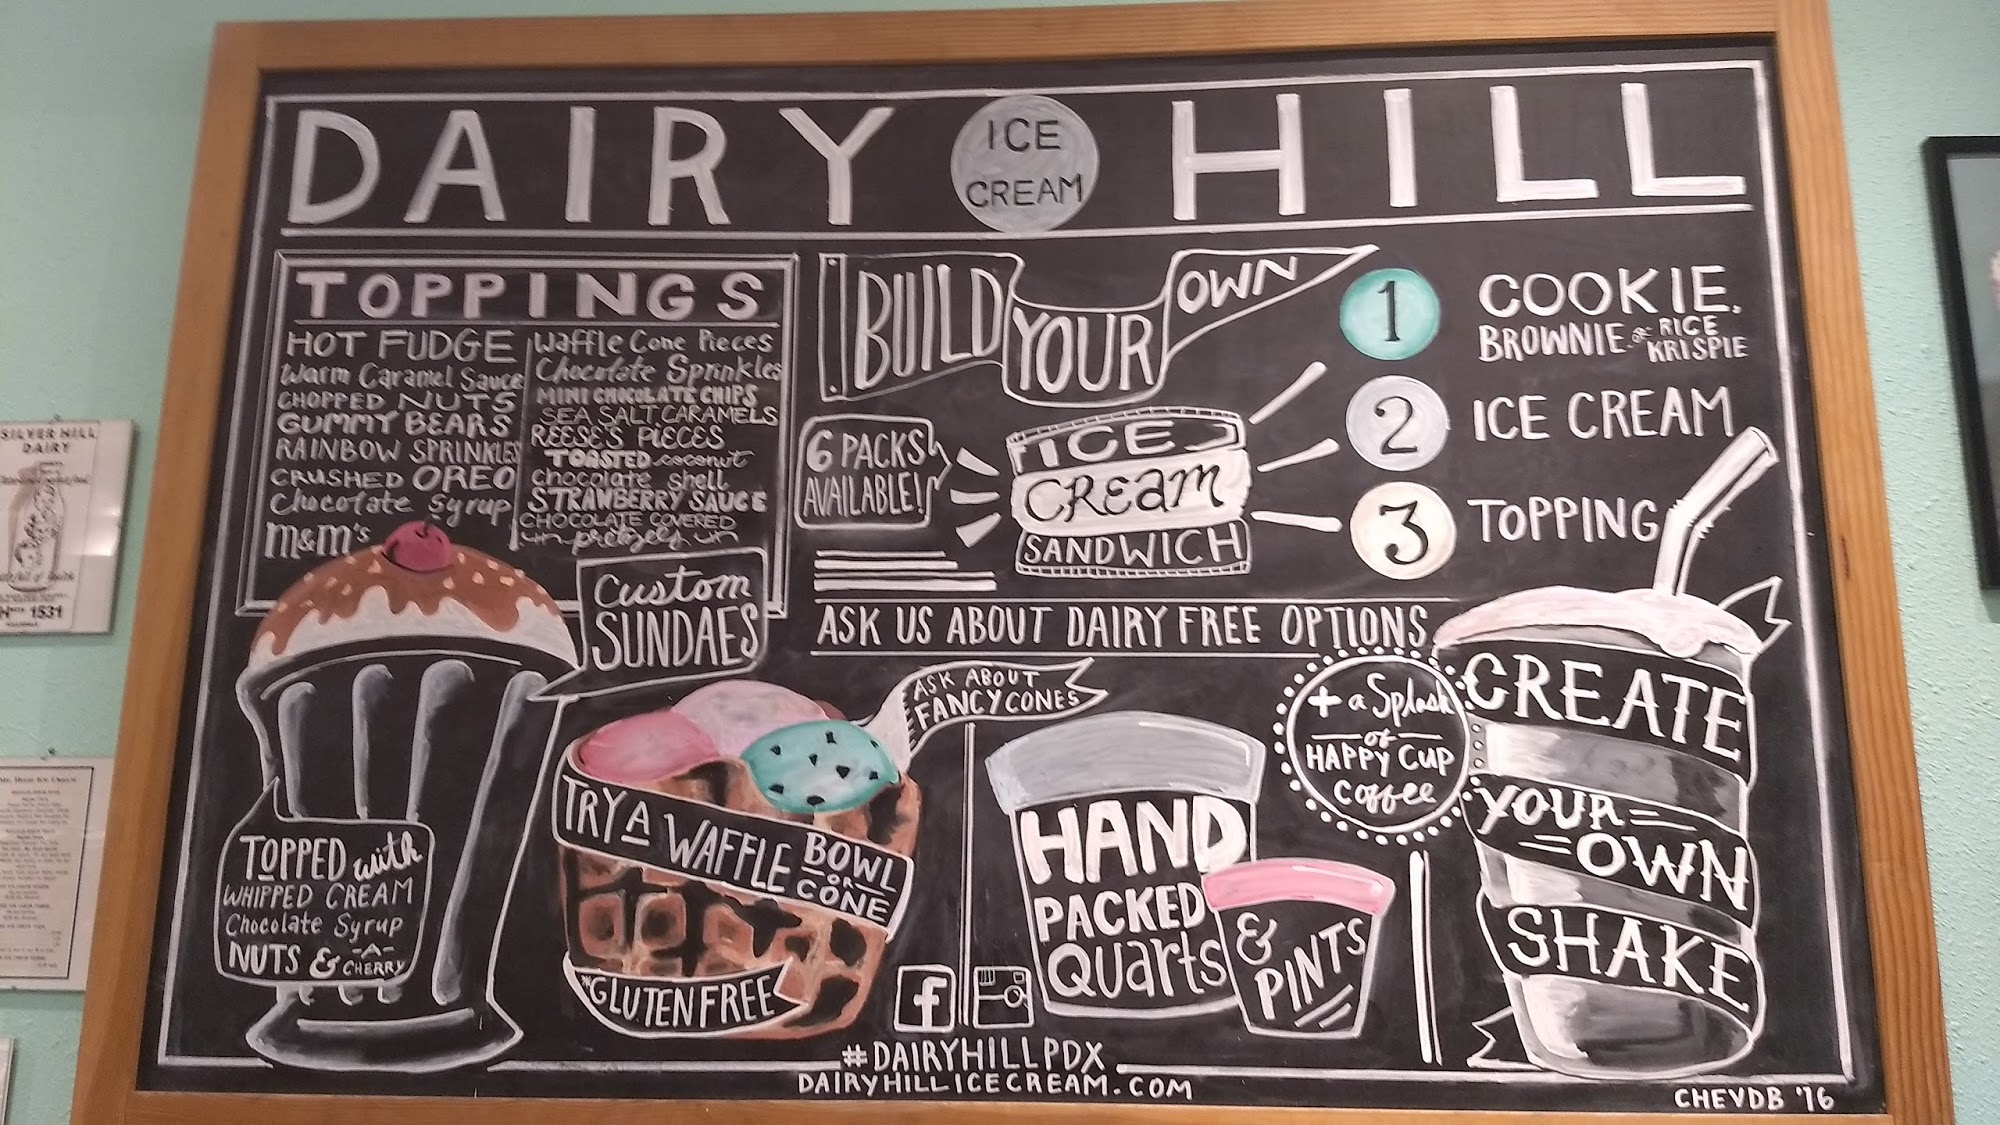 DAIRY ICE CREAM HILL
TOPPINGS
HOT FUDGE
Warm Caramel Sauce
CHOPPED NUTS
GUMMY BEARS
RAINBOW SPRINKLES
CRUSHED OREO
Chocolate Syrup
m&m's
Waffle Cone Pieces
Chocolate Sprinkles
MINI CHOCOLATE CHIPS
SEA SALT CARAMELS
REESE'S PIECES
TOASTED coconut
Chocolate Shell
STRAWBERRY SAUCE
CHOCOLATE COVERED
pretzels
BUILD YOUR OWN
6 PACKS
AVAILABLE!
ICE
CREAM
SANDWICH
1 COOKIE,
BROWNIE or RICE
KRISPIE
2 ICE CREAM
3 TOPPING
ASK US ABOUT DAIRY FREE OPTIONS
Custom
SUNDAES
TOPPED with
WHIPPED CREAM
Chocolate Syrup
NUTS & -A-
CHERRY
ASK ABOUT
FANCY CONES
TRY A WAFFLE BOWL
OR
CONE
*GLUTEN FREE
f
HAND
PACKED
Quarts
&
PINTS
+ a Splash
of
HAPPY CUP
coffee
CREATE
YOUR
OWN
SHAKE
#DAIRYHILLPDX
DAIRYHILLICECREAM.COM
CHEVDB '16
SILVER HILL
DAIRY
1531